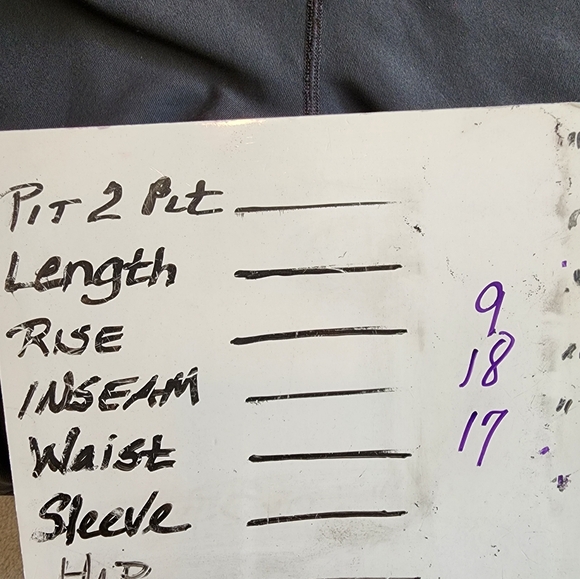 PIT 2 PIT
Length
RISE 9
INSEAM 18
Waist 17
Sleeve
HIP